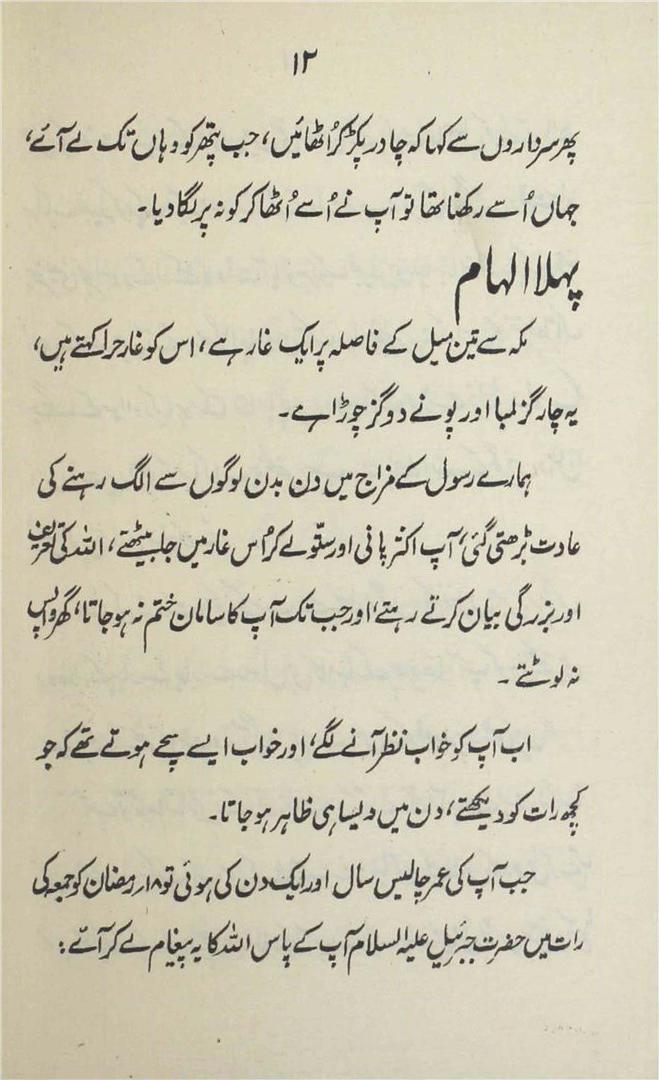 ۱۲
پھر سرداروں سے کہا کہ چادر پکڑ کر اُٹھائیں، جب پتھر کو وہاں تک لے آئے،
جہاں اُسے رکھنا تھا تو آپ نے اُسے اُٹھا کر کونہ پر لگا دیا۔
پہلا الہام
مکہ سے تین میل کے فاصلہ پر ایک غار ہے، اس کو غار حرا کہتے ہیں،
یہ چار گز لمبا اور پونے دو گز چوڑا ہے۔
ہمارے رسول کے مزاج میں دن بدن لوگوں سے الگ رہنے کی
عادت بڑھتی گئی، آپ اکثر پانی اور ستّو لے کر اُس غار میں جا بیٹھتے، اللہ کی تعریف
اور بزرگی بیان کرتے رہتے، اور جب تک آپ کا سامان ختم نہ ہو جاتا، گھر واپس
نہ لوٹتے۔
اب آپ کو خواب نظر آنے لگے، اور خواب ایسے سچے ہوتے تھے کہ جو
کچھ رات کو دیکھتے، دن میں ویسا ہی ظاہر ہو جاتا۔
جب آپ کی عمر چالیس سال اور ایک دن کی ہوئی تو ۱۸؍ رمضان کو جمعہ کی
رات میں حضرت جبرئیل علیہ السلام آپ کے پاس اللہ کا یہ پیغام لے کر آئے: